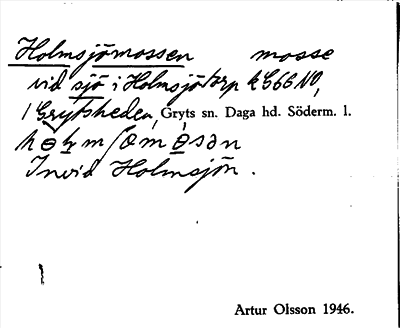 Holmsjömossen mosse
vid sjö i Holmsjötorp k G66 NO,
i Grytsheden, Gryts sn. Daga hd. Söderm. l.
Invid Holmsjön.
Artur Olsson 1946.